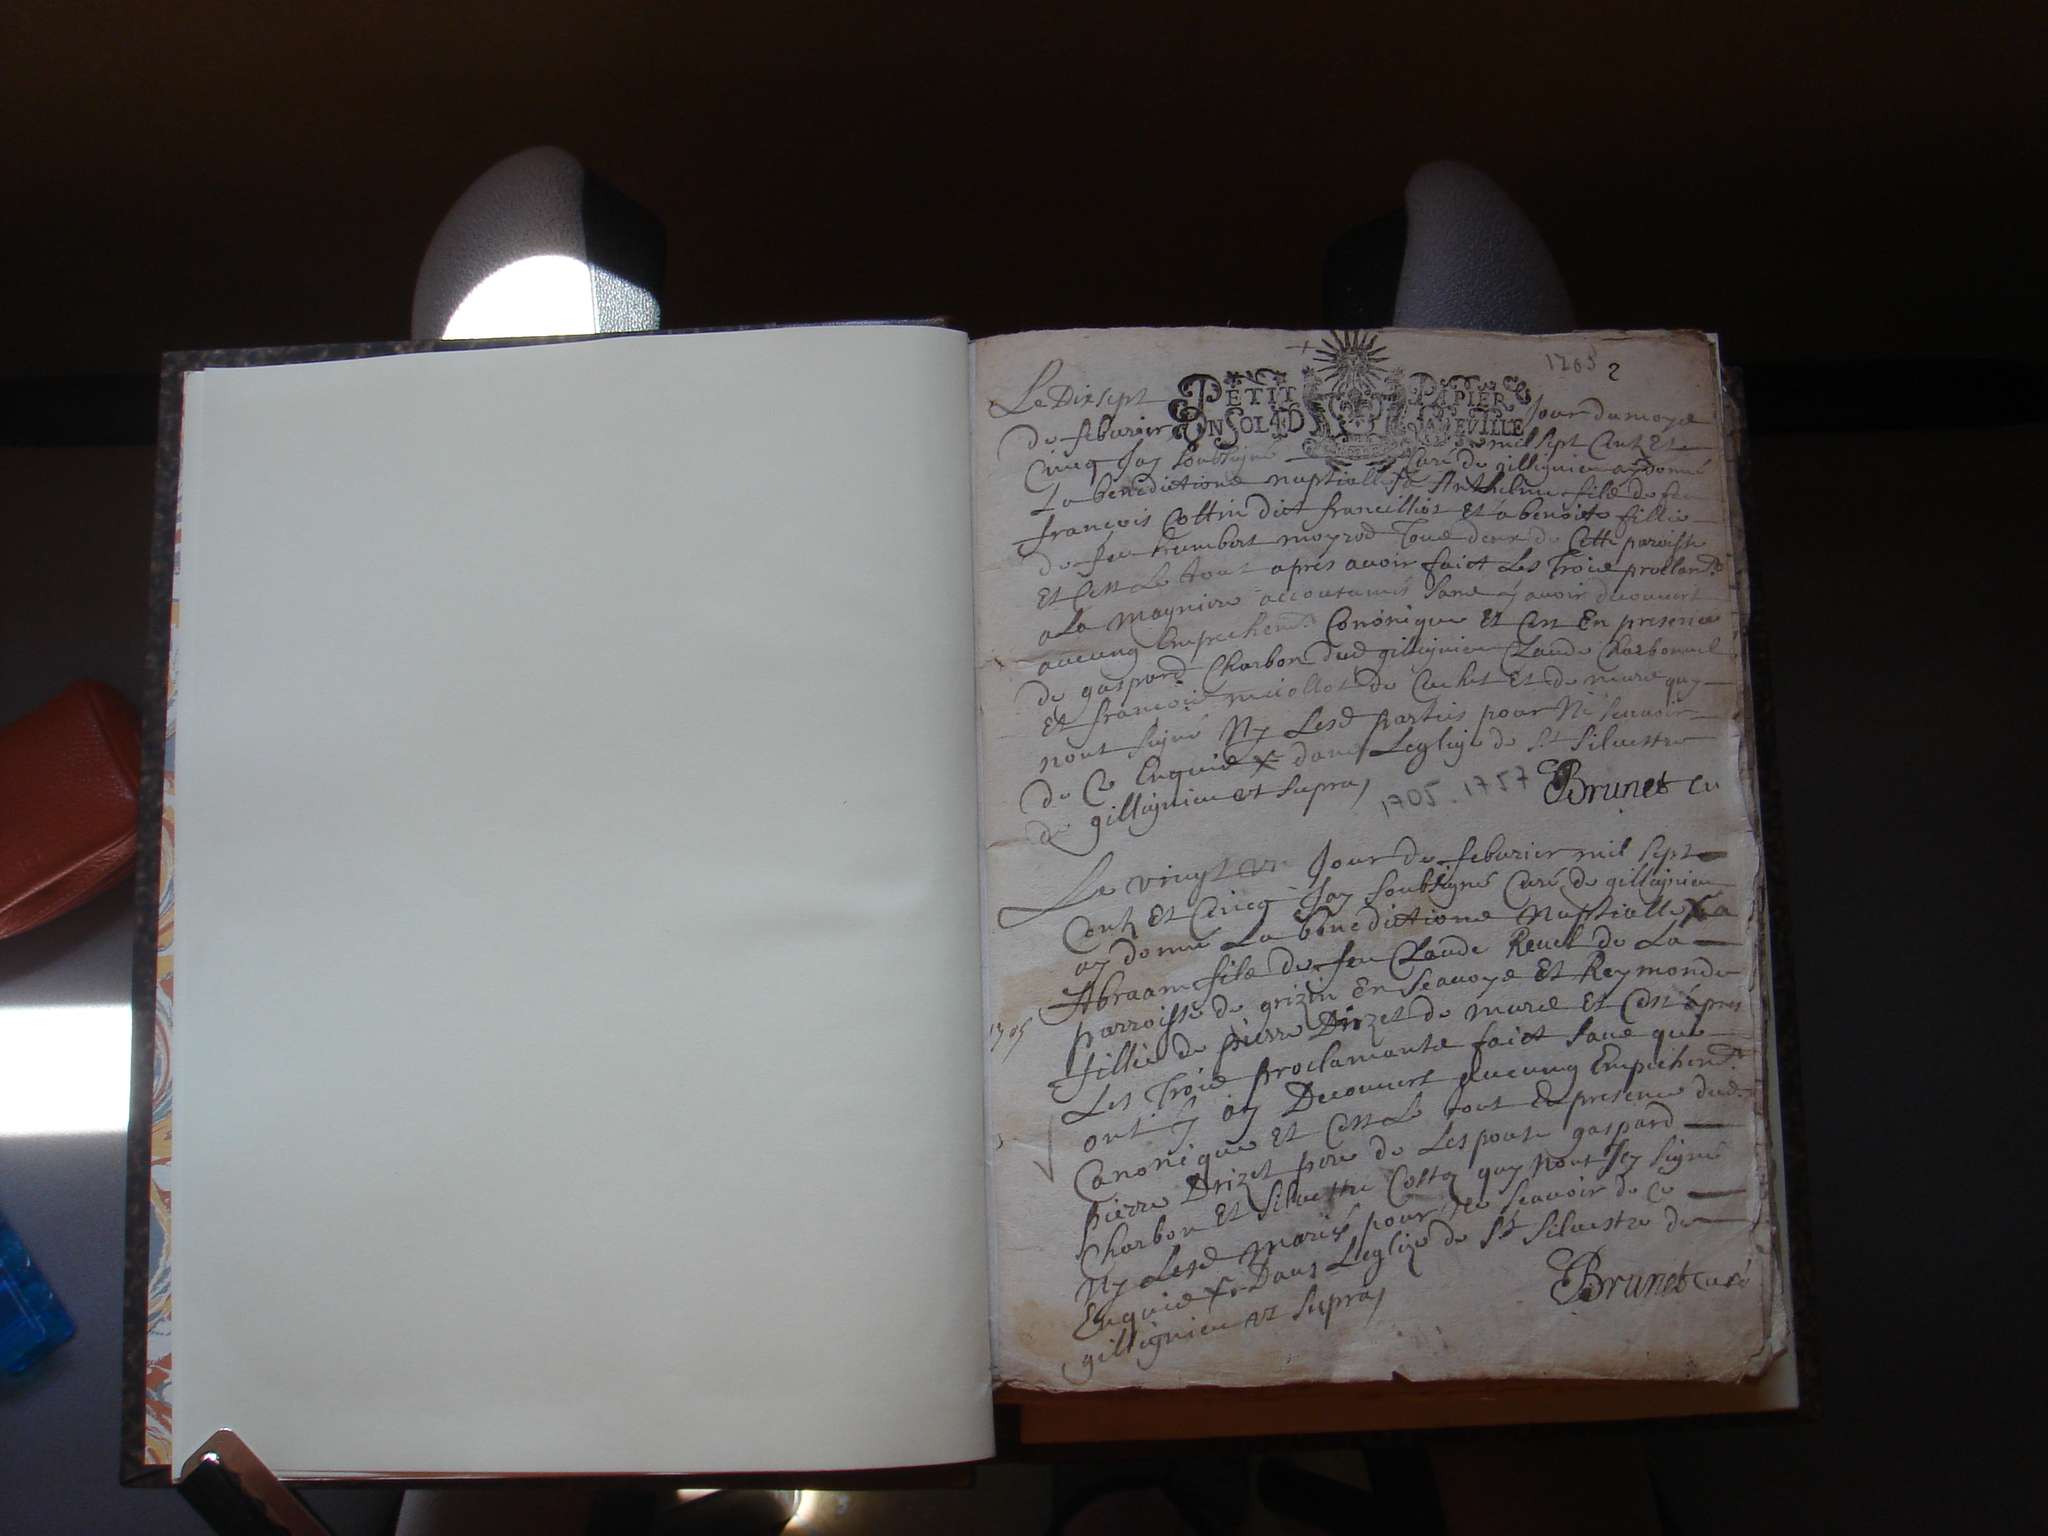 1705 2
PETIT PAPIER
UN SOL 4 D LA FEVILLE
Le Dixsept Jour du moye
de feburier mil sept Cent Et
Cincq Jay soubsigné Curé de gillignieu ay donné
La benedictione nuptialle a Anthelme file de feu
françois Cottin dict francillion Et a benoite fillie
de feu humbert moyrod Toue deux de Cette paroisse
Et Cest Le tout apres avoir faict Les Troie proclam.
a La magniere accoutumés sane y avoir decouvert
aucung Empechem. Canonique Et Cest En presence
de gaspard Charbon dud gillignieu Claude Charbonnel
Et françois miollot de Cuchet Et de mure quy
nont signé Ny Lesd parties pour Ne scavoir
de Ce Enquie x dans Leglize de St Silvestre
de gillignieu ut supra,
Brunet cu
1705. 1727
Le vingt un Jour de feburier mil sept
Cent Et Cincq Jay soubsigné Curé de gillignieu
ay donné La benedictione Nuptialle a
Abraam file de feu Claude Revel de La
parroisse de grizin En Seavoye Et Reymonde
fillie de pierre Drizet de mure Et Cest apres
1705
Les Troie proclamante faict sane que
ont y ay Decouvert aucung Empechem.
Canonique Et Cest Le tout En presence dud.
pierre Drizet pere de Lespouse gaspard
Charbon Et Silvestre Cottin quy Nont sy signé
Ny Lesd mariés pour Ne scavoir de Ce
Enquie x Dans Leglize de St Silvestre de
gillignieu ut supra,
Brunet curé